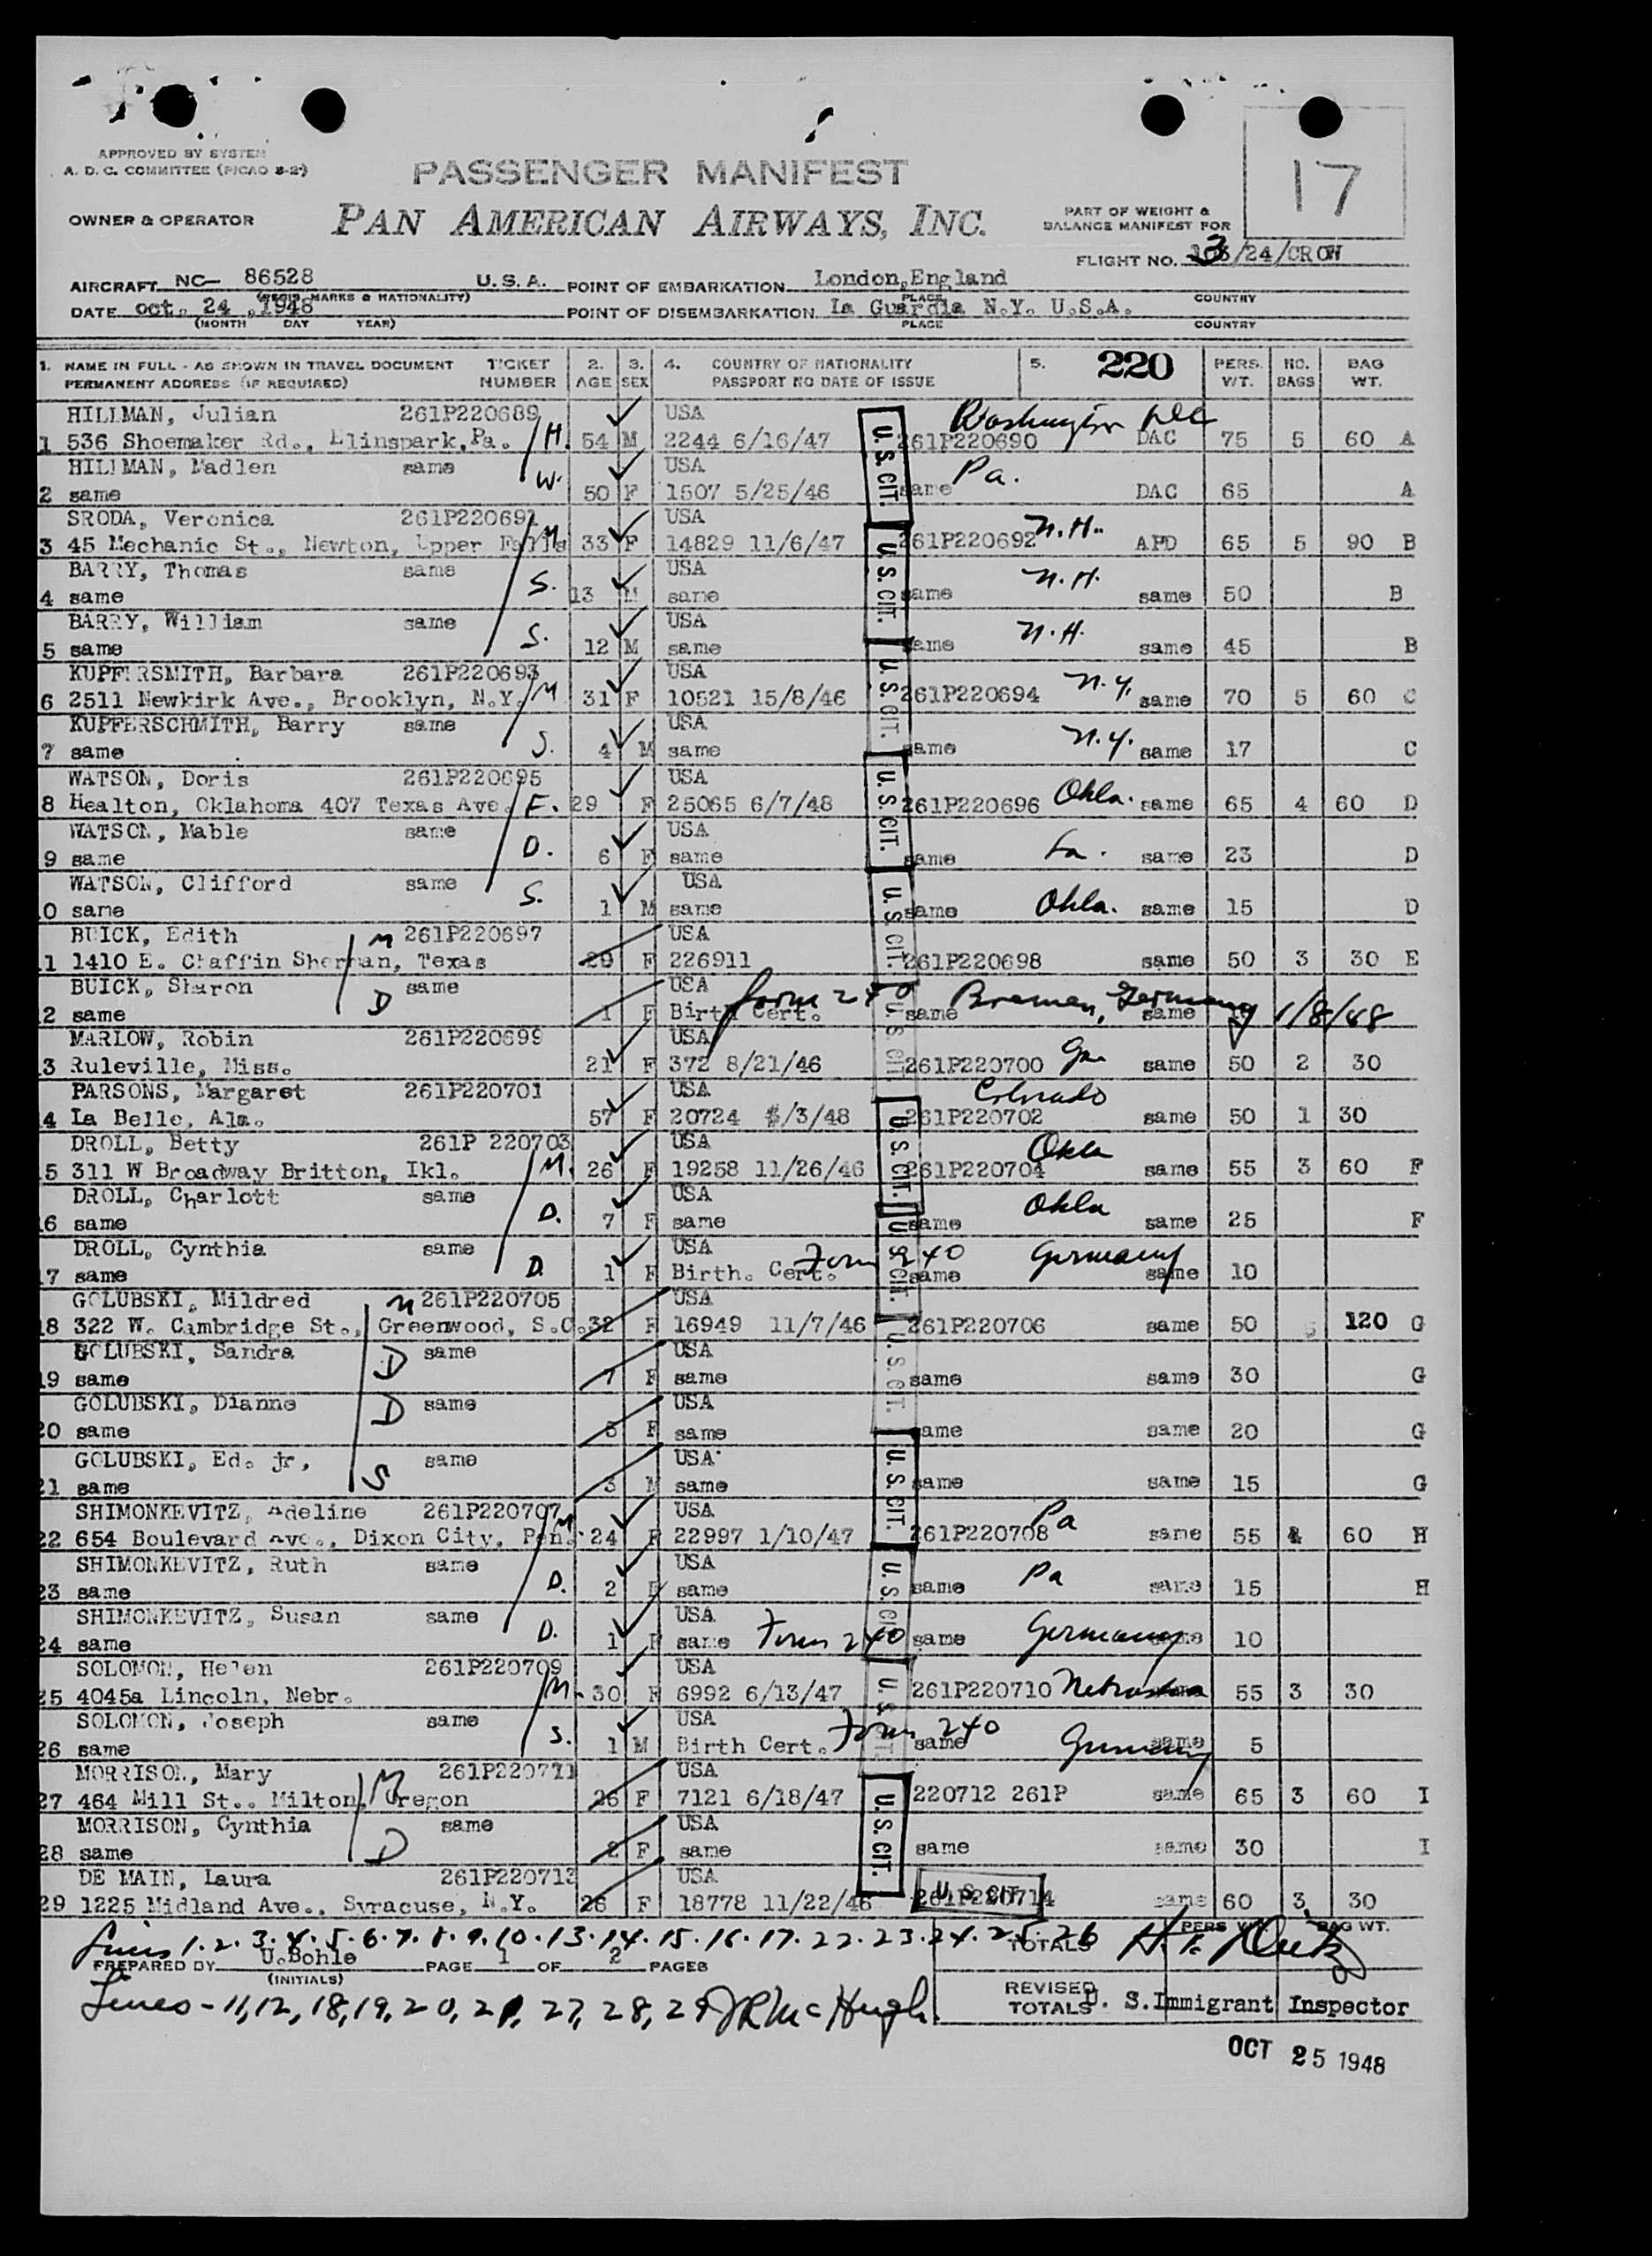 APPROVED BY SYSTEM
A. D. C. COMMITTEE (PICAO 8-2)
17
PASSENGER MANIFEST
OWNER & OPERATOR
PAN AMERICAN AIRWAYS, INC.
PART OF WEIGHT &
BALANCE MANIFEST FOR
FLIGHT NO. 3/24/CROW
AIRCRAFT NC- 86528 U.S.A. POINT OF EMBARKATION London,England
(REGIS. MARKS & NATIONALITY) PLACE COUNTRY
DATE oct. 24 ,1948 POINT OF DISEMBARKATION La Guardia N.Y. U.S.A.
(MONTH DAY YEAR) PLACE COUNTRY
1. NAME IN FULL - AS SHOWN IN TRAVEL DOCUMENT TICKET 2. 3. 4. COUNTRY OF NATIONALITY 5. 220 PERS. NO. BAG
PERMANENT ADDRESS (IF REQUIRED) NUMBER AGE SEX PASSPORT NO DATE OF ISSUE WT. BAGS WT.
HILLMAN, Julian 261P220689 USA Washington DC
1 536 Shoemaker Rd., Elinspark,Pa. H. 54 M 2244 6/16/47 U.S.CIT. 261P220690 DAC 75 5 60 A
HILLMAN, Madlen same USA Pa.
2 same W. 50 F 1507 5/25/46 same DAC 65 A
SRODA, Veronica 261P220691 USA N.H.
3 45 Mechanic St., Newton, Upper Falls M 33 F 14829 11/6/47 U.S.CIT. 261P220692 APD 65 5 90 B
BARRY, Thomas same USA N.H.
4 same S. 13 M same same same 50 B
BARRY, William same USA N.H.
5 same S. 12 M same same same 45 B
KUPFERSMITH, Barbara 261P220693 USA N.Y.
6 2511 Newkirk Ave., Brooklyn, N.Y. M 31 F 10521 15/8/46 U.S.CIT. 261P220694 same 70 5 60 C
KUPFERSCHMITH, Barry same USA N.Y.
7 same S. 4 M same same same 17 C
WATSON, Doris 261P220695 USA Okla.
8 Healton, Oklahoma 407 Texas Ave. F. 29 F 25065 6/7/48 U.S.CIT. 261P220696 same 65 4 60 D
WATSON, Mable same USA
9 same D. 6 F same same La. same 23 D
WATSON, Clifford same USA
0 same S. 1 M same U.S.CIT. same Okla. same 15 D
BUICK, Edith M 261P220697 USA
1 1410 E. Chaffin Sherman, Texas 29 F 226911 261P220698 same 50 3 30 E
BUICK, Sharon same USA form 240 Bremen, Germany 1/8/48
2 same D 1 F Birth Cert. U.S.CIT. same same
MARLOW, Robin 261P220699 USA
3 Ruleville, Miss. 21 F 372 8/21/46 261P220700 Ga same 50 2 30
PARSONS, Margaret 261P220701 USA Colorado
4 La Belle, Ala. 57 F 20724 /3/48 U.S.CIT. 261P220702 same 50 1 30
DROLL, Betty 261P 220703 USA Okla
5 311 W Broadway Britton, Ikl. M. 26 F 19258 11/26/46 261P220704 same 55 3 60 F
DROLL, Charlott same USA Okla
6 same D. 7 F same U.S.CIT. same same 25 F
DROLL, Cynthia same USA Form 240 Germany
7 same D. 1 F Birth. Cert. same same 10
GOLUBSKI, Mildred M 261P220705 USA
8 322 W. Cambridge St., Greenwood, S.C. 32 F 16949 11/7/46 U.S.CIT. 261P220706 same 50 5 120 G
GOLUBSKI, Sandra same USA
9 same D 7 F same same same 30 G
GOLUBSKI, Dianne same USA
20 same D 5 F same same same 20 G
GOLUBSKI, Ed. jr, same USA
21 same S 3 M same U.S.CIT. same same 15 G
SHIMONKEVITZ, Adeline 261P220707 USA Pa
22 654 Boulevard Ave., Dixon City, Pen. M 24 F 22997 1/10/47 261P220708 same 55 4 60 H
SHIMONKEVITZ, Ruth same USA Pa
23 same D. 2 F same U.S.CIT. same same 15 H
SHIMONKEVITZ, Susan same USA
24 same D. 1 F same Form 240 same Germany same 10
SOLOMON, Helen 261P220709 USA
25 4045a Lincoln, Nebr. M. 30 F 6992 6/13/47 U.S.CIT. 261P220710 Nebraska same 55 3 30
SOLOMON, Joseph same USA Form 240
26 same S. 1 M Birth Cert. same Germany same 5
MORRISON, Mary M 261P220711 USA
27 464 Mill St.. Milton, Oregon 26 F 7121 6/18/47 U.S.CIT. 220712 261P same 65 3 60 I
MORRISON, Cynthia same USA
28 same D 2 F same same same 30 I
DE MAIN, Laura 261P220713 USA U.S.CIT
29 1225 Midland Ave., Syracuse, N.Y. 26 F 18778 11/22/46 261P220714 same 60 3 30
Lines 1.2.3.4.5.6.7.8.9.10.13.14.15.16.17.22.23.24.25.26
PERS WT. BAG WT.
TOTALS
PREPARED BY U.Bohle PAGE 1 OF 2 PAGES
(INITIALS)
Lines - 11,12,18,19,20,21,27,28,29 JR McHugh
REVISED
TOTALS U. S. Immigrant Inspector
OCT 25 1948